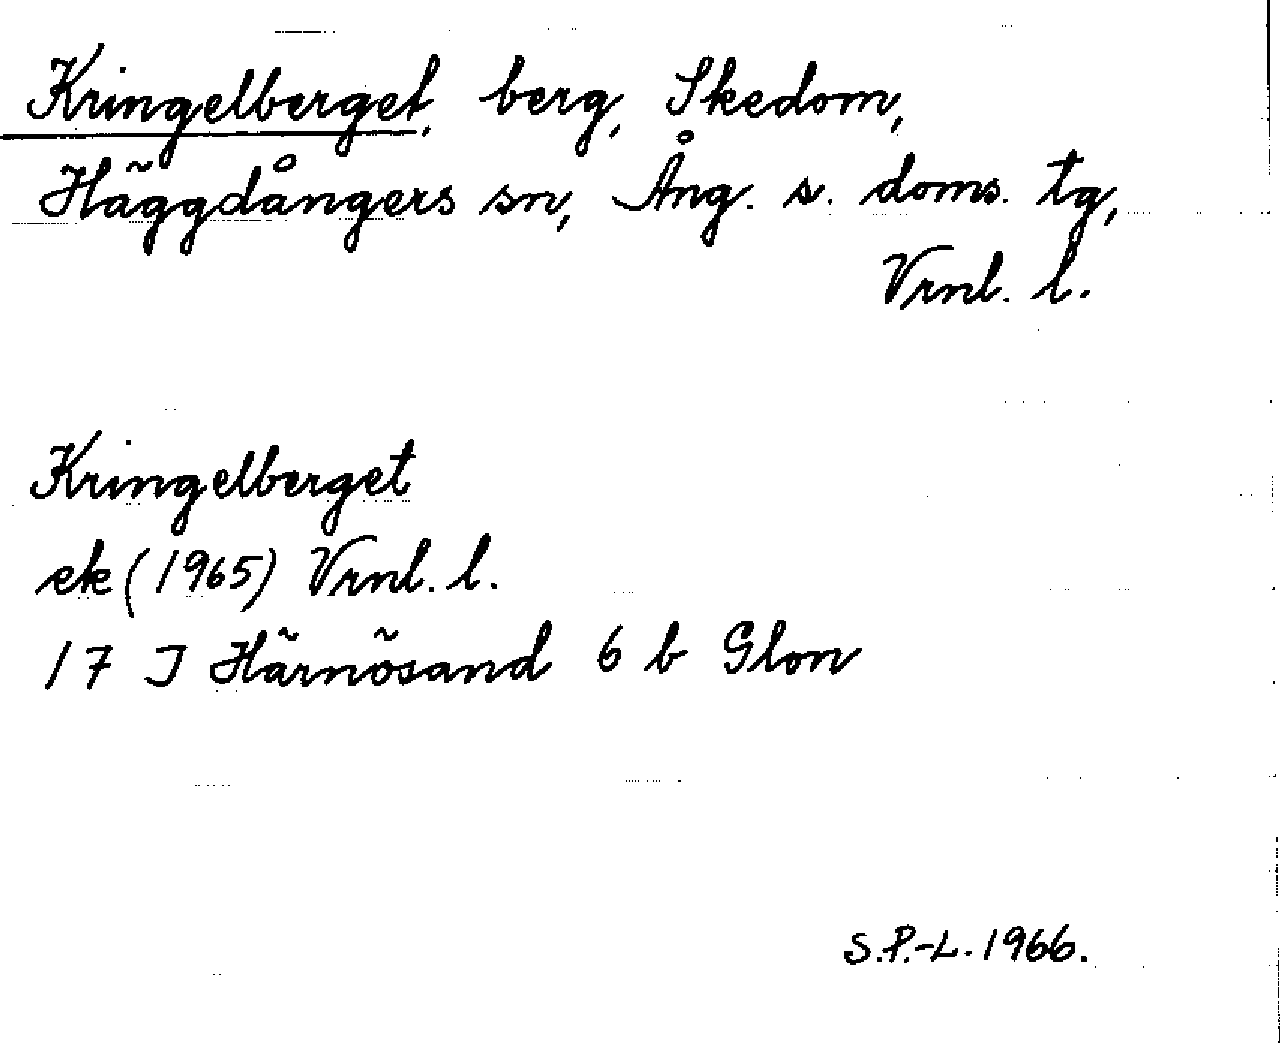 Kringelberget, berg, Skedom,
Häggdångers sn, Ång. s. doms. tg,
Vrnl. l.
Kringelberget
ek (1965) Vrnl. l.
17 J Härnösand 6 b Glon
S.P.-L. 1966.